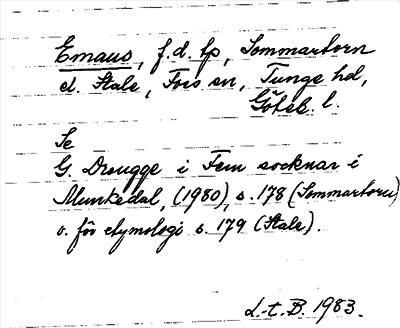 Emaus, f.d. lp, Sommartorn
el. Stale, Foss sn, Tunge hd,
Göteb. l.
Se
G. Drougge i Fem socknar i
Munkedal, (1980), s. 178 (Sommartorn)
o. för etymologi s. 179 (Stale).
L-t. B. 1983.